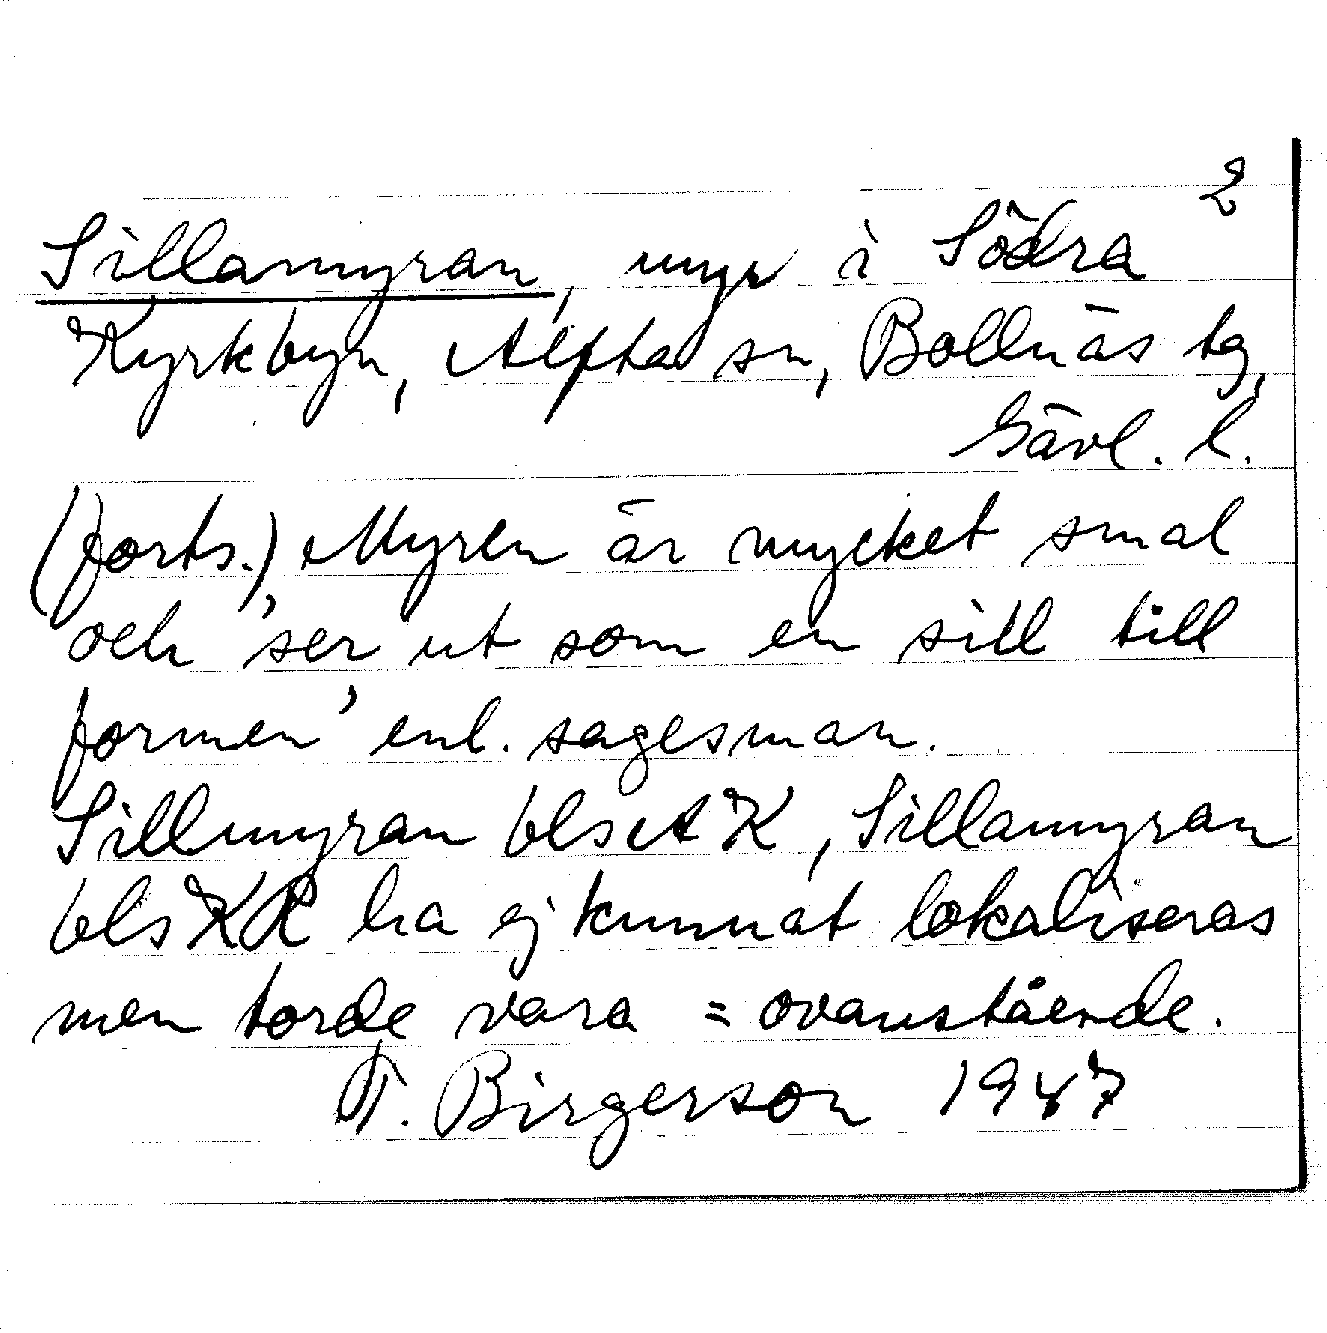 2
Sillamyran, myr i Södra
Kyrkbyn, Alfta sn, Bollnäs tg,
Gävl. l.
(forts.) Myren är mycket smal
och 'ser ut som en sill till
formen' enl. sagesman.
Sillmyran blsAK, Sillamyran
blsKR ha ej kunnat lokaliseras
men torde vara = ovanstående.
F. Birgerson 1947